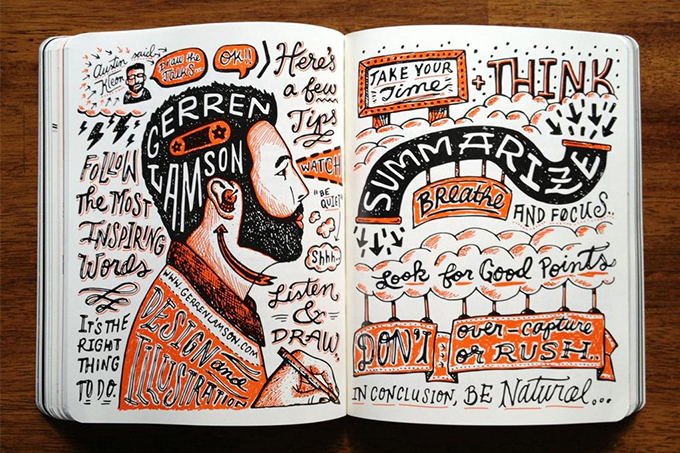 Austin
Kleon
said
Draw the
Talks..
OK!!
Here's
a few
Tips
GERREN
LAMSON
WATCH
"BE
QUIET"
Shhh..
FOLLOW
The MOST
INSPIRING
Words
IT'S THE
RIGHT
THING
TO DO.
WWW.GERRENLAMSON.COM
DESIGN and
ILLUSTRATION
Listen
&
DRAW..
TAKE YOUR
Time
+ THINK
SUMMARIZE
Breathe
AND FOCUS..
Look for Good Points
DON'T
over-capture
or RUSH..
IN CONCLUSION, BE Natural...